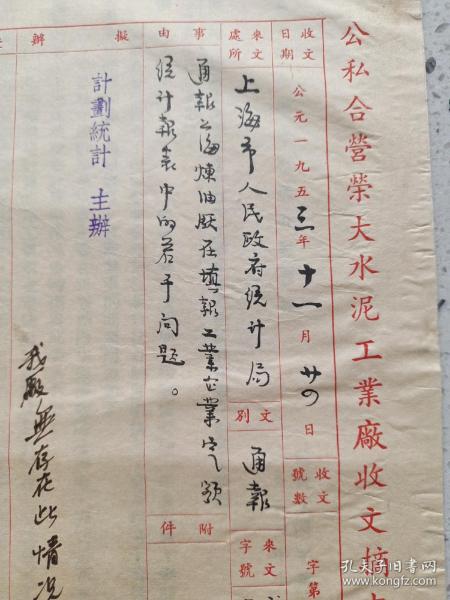 公私合營榮大水泥工業廠收文摘
收文日期
公元一九五三年十一月廿四日
收文號數
字第
來文處所
上海市人民政府統計局
文別
通報
來文字號
事由
通報上海煉油厰在填報工業企業定額
統計報表中的若干问題。
附件
擬辦
計劃統計 主辦
我厰無存在此情况
孔夫子旧书网